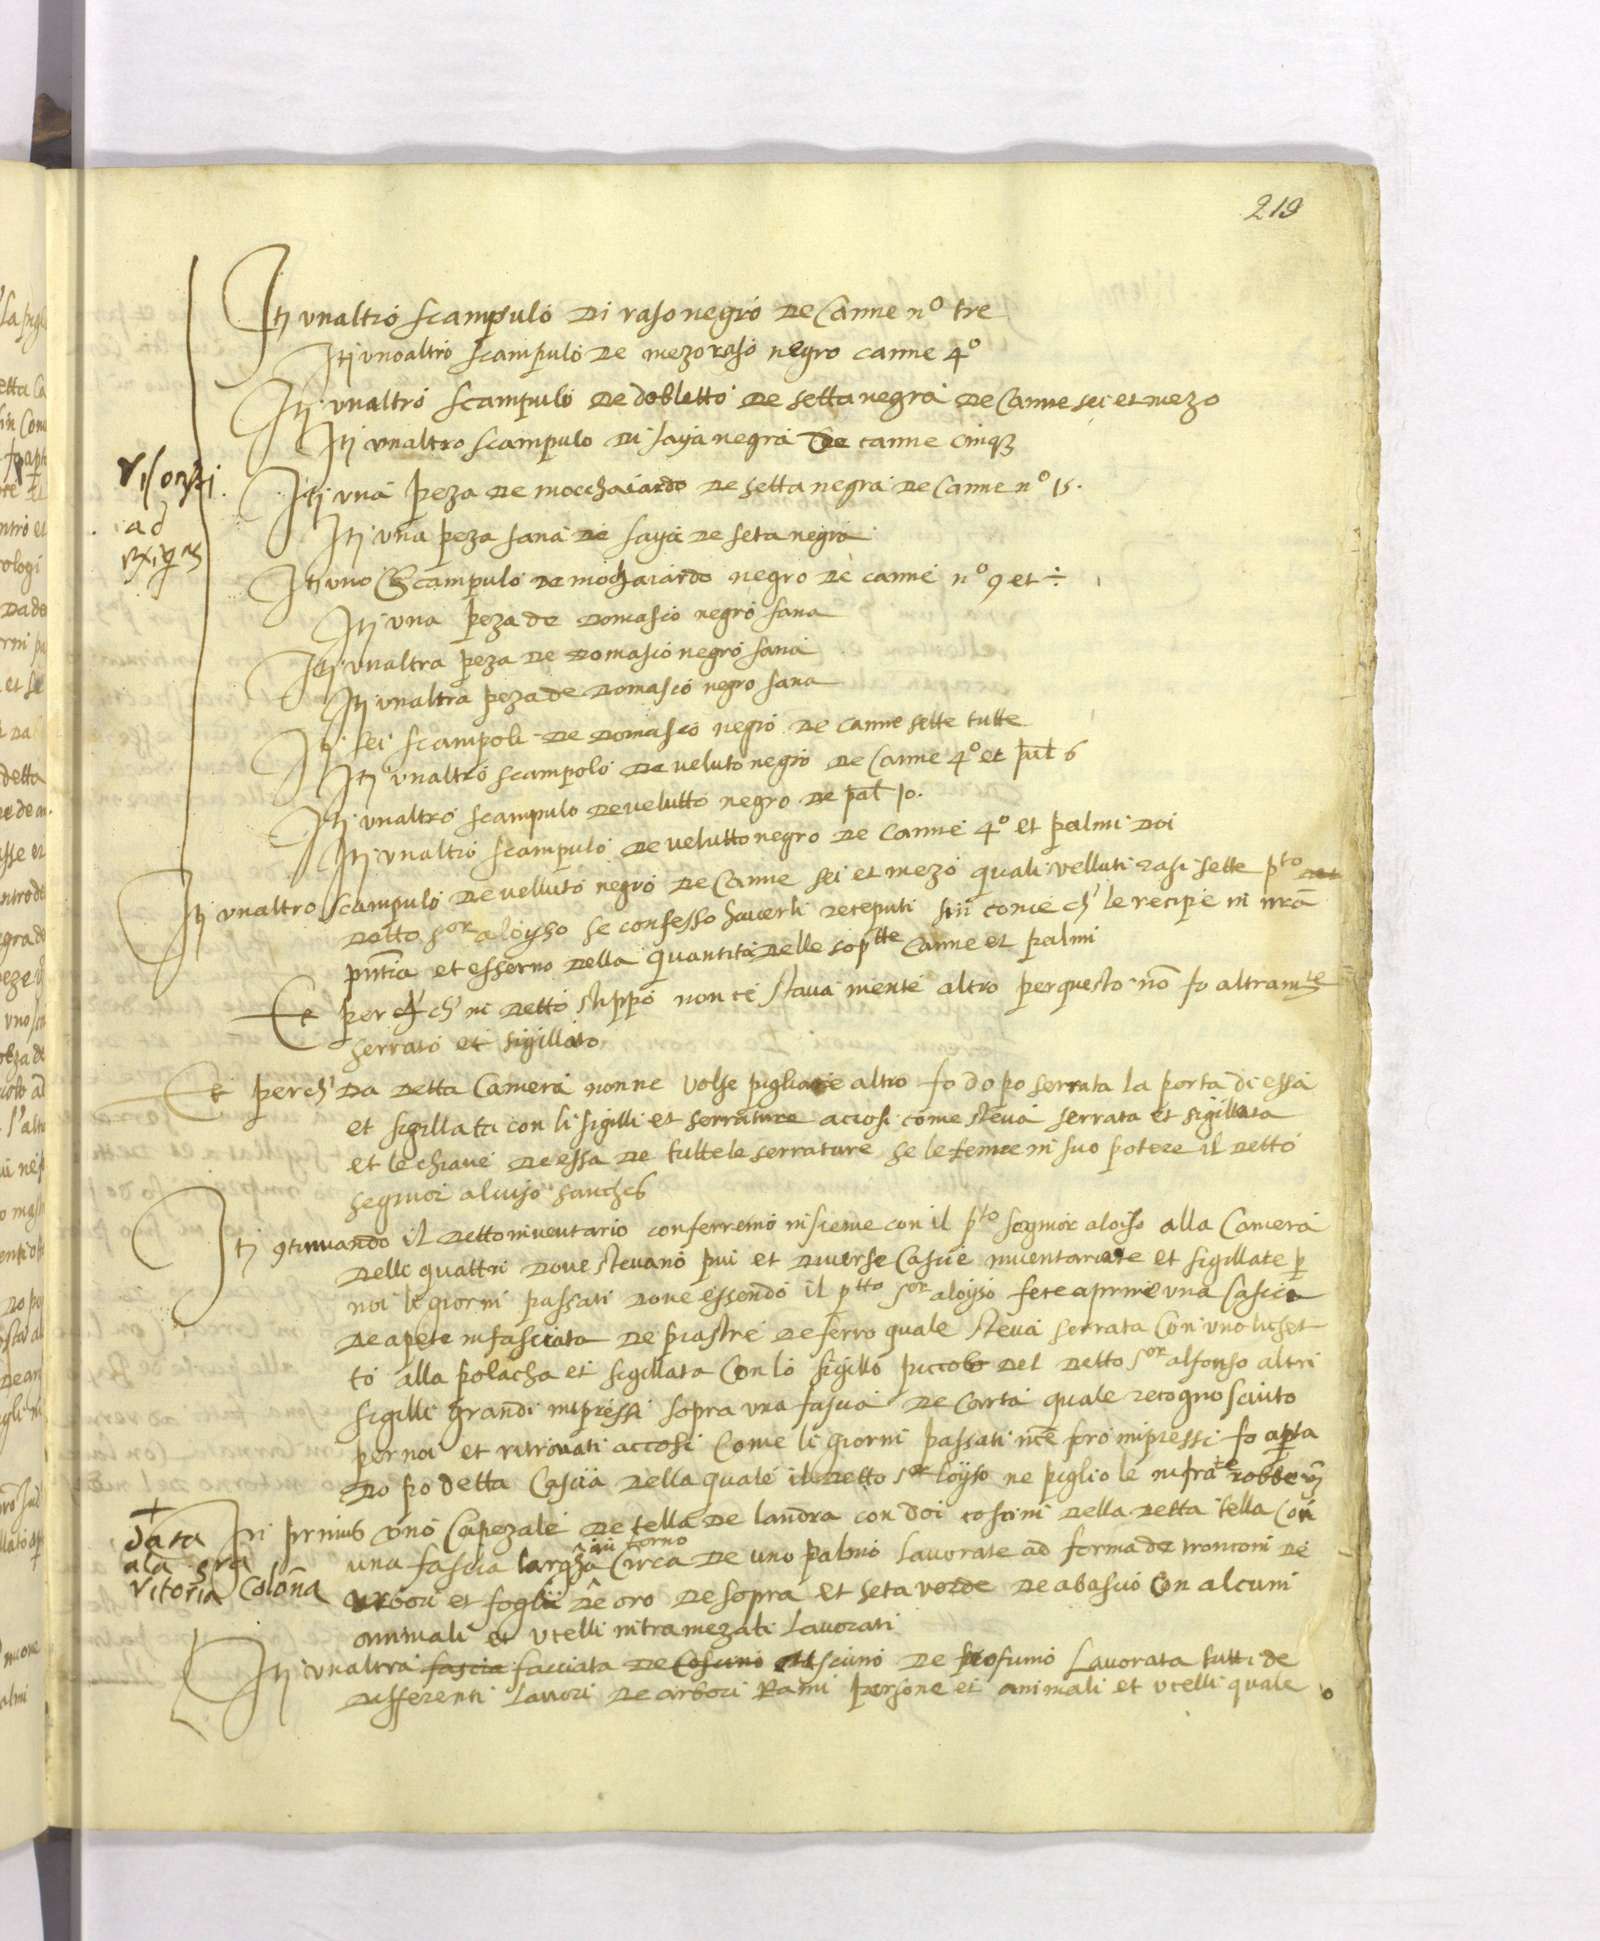 219
Itj unaltro scampulo di raso negro de Canne nº tre
Itj unoaltro scampulo de mezoraso negro canne 4º
Itj unaltro scampulo de dobletto de setta negra de Canne sei et mezo
Itj unaltro scampulo di saya negra de canne cinq3
Itj una peza de mocchaiardo de setta negra de Canne nº 15.
ad
Itj una peza sana de saya de seta negra
Itj uno scampulo de mochaiardo negro de canne nº 9 et ÷
Itj una peza de domasco negro sana
Itj unaltra peza de domasco negro sana
Itj unaltra peza de domasco negro sana
Itj sei scampoli de domasco negro de canne sette tutte
Itj unaltro scampolo de veluto negro de Canne 4º et pal 6
Itj unaltro scampulo de velutto negro de pal 10.
Itj unaltro scampulo de velutto negro de canne 4º et palmi doi
Itj unaltro scampulo de velluto negro de Canne sei et mezo quali velluti rasi sette pto
Detto sor aloyso se confesso haverli receputi sici come ch' le recipe in nra
pntia et esserno della quantita delle soptte Canne et palmi
Et perch' in detto stippo non ce stava niente altro per questo no fo altramte
serrato et sigillato
Et perch' da detta Camera non ne volse pigliare altro fo dopo serrata la porta di essa
et sigillata con li sigilli et serrature accosi come steva serrata et sigillata
et le chiave de essa de tutte le serrature se le tenne in suo potere il detto
segnior aluiso sanches
Itj 9tinuando il detto inventario conferremo insieme con il pto segnior aloiso alla Camera
delli quattri dove stevano piu et diverse Cascie inventariate et sigillate p
noi li giorni passati dove essendo il ptto sor aloyso fece aprire una Cascia
de apete infasciata de piastre de ferro quale steva serrata con uno luchet
to alla polacha et sigillata con lo sigillo piccolo del detto sor alfonso altri
sigilli grandi impressi sopra una fascia de carta quale recognosciuto
per noi et ritrovati accosi come li giorni passati nce foro impressi fo apta
dopo detta Cascia della quale il detto sor loyso ne piglio le infrate robbe vz
+
data
ala sra
vitoria Colona
In primis uno Capezale de tella de landra con doi coscini della detta tella con
in torno
una fascia largha Circa de uno palmo lavorate ad forma de tronconi de
arbori et foglii de oro de sopra et seta verde de abascio con alcuni
animali et ucelli intramezati lavorati
Itj unaltra fascia facciata de Coscino de profumo Lavorata tutti de
differenti lavori de arbori Rami persone et animali et ucelli quale